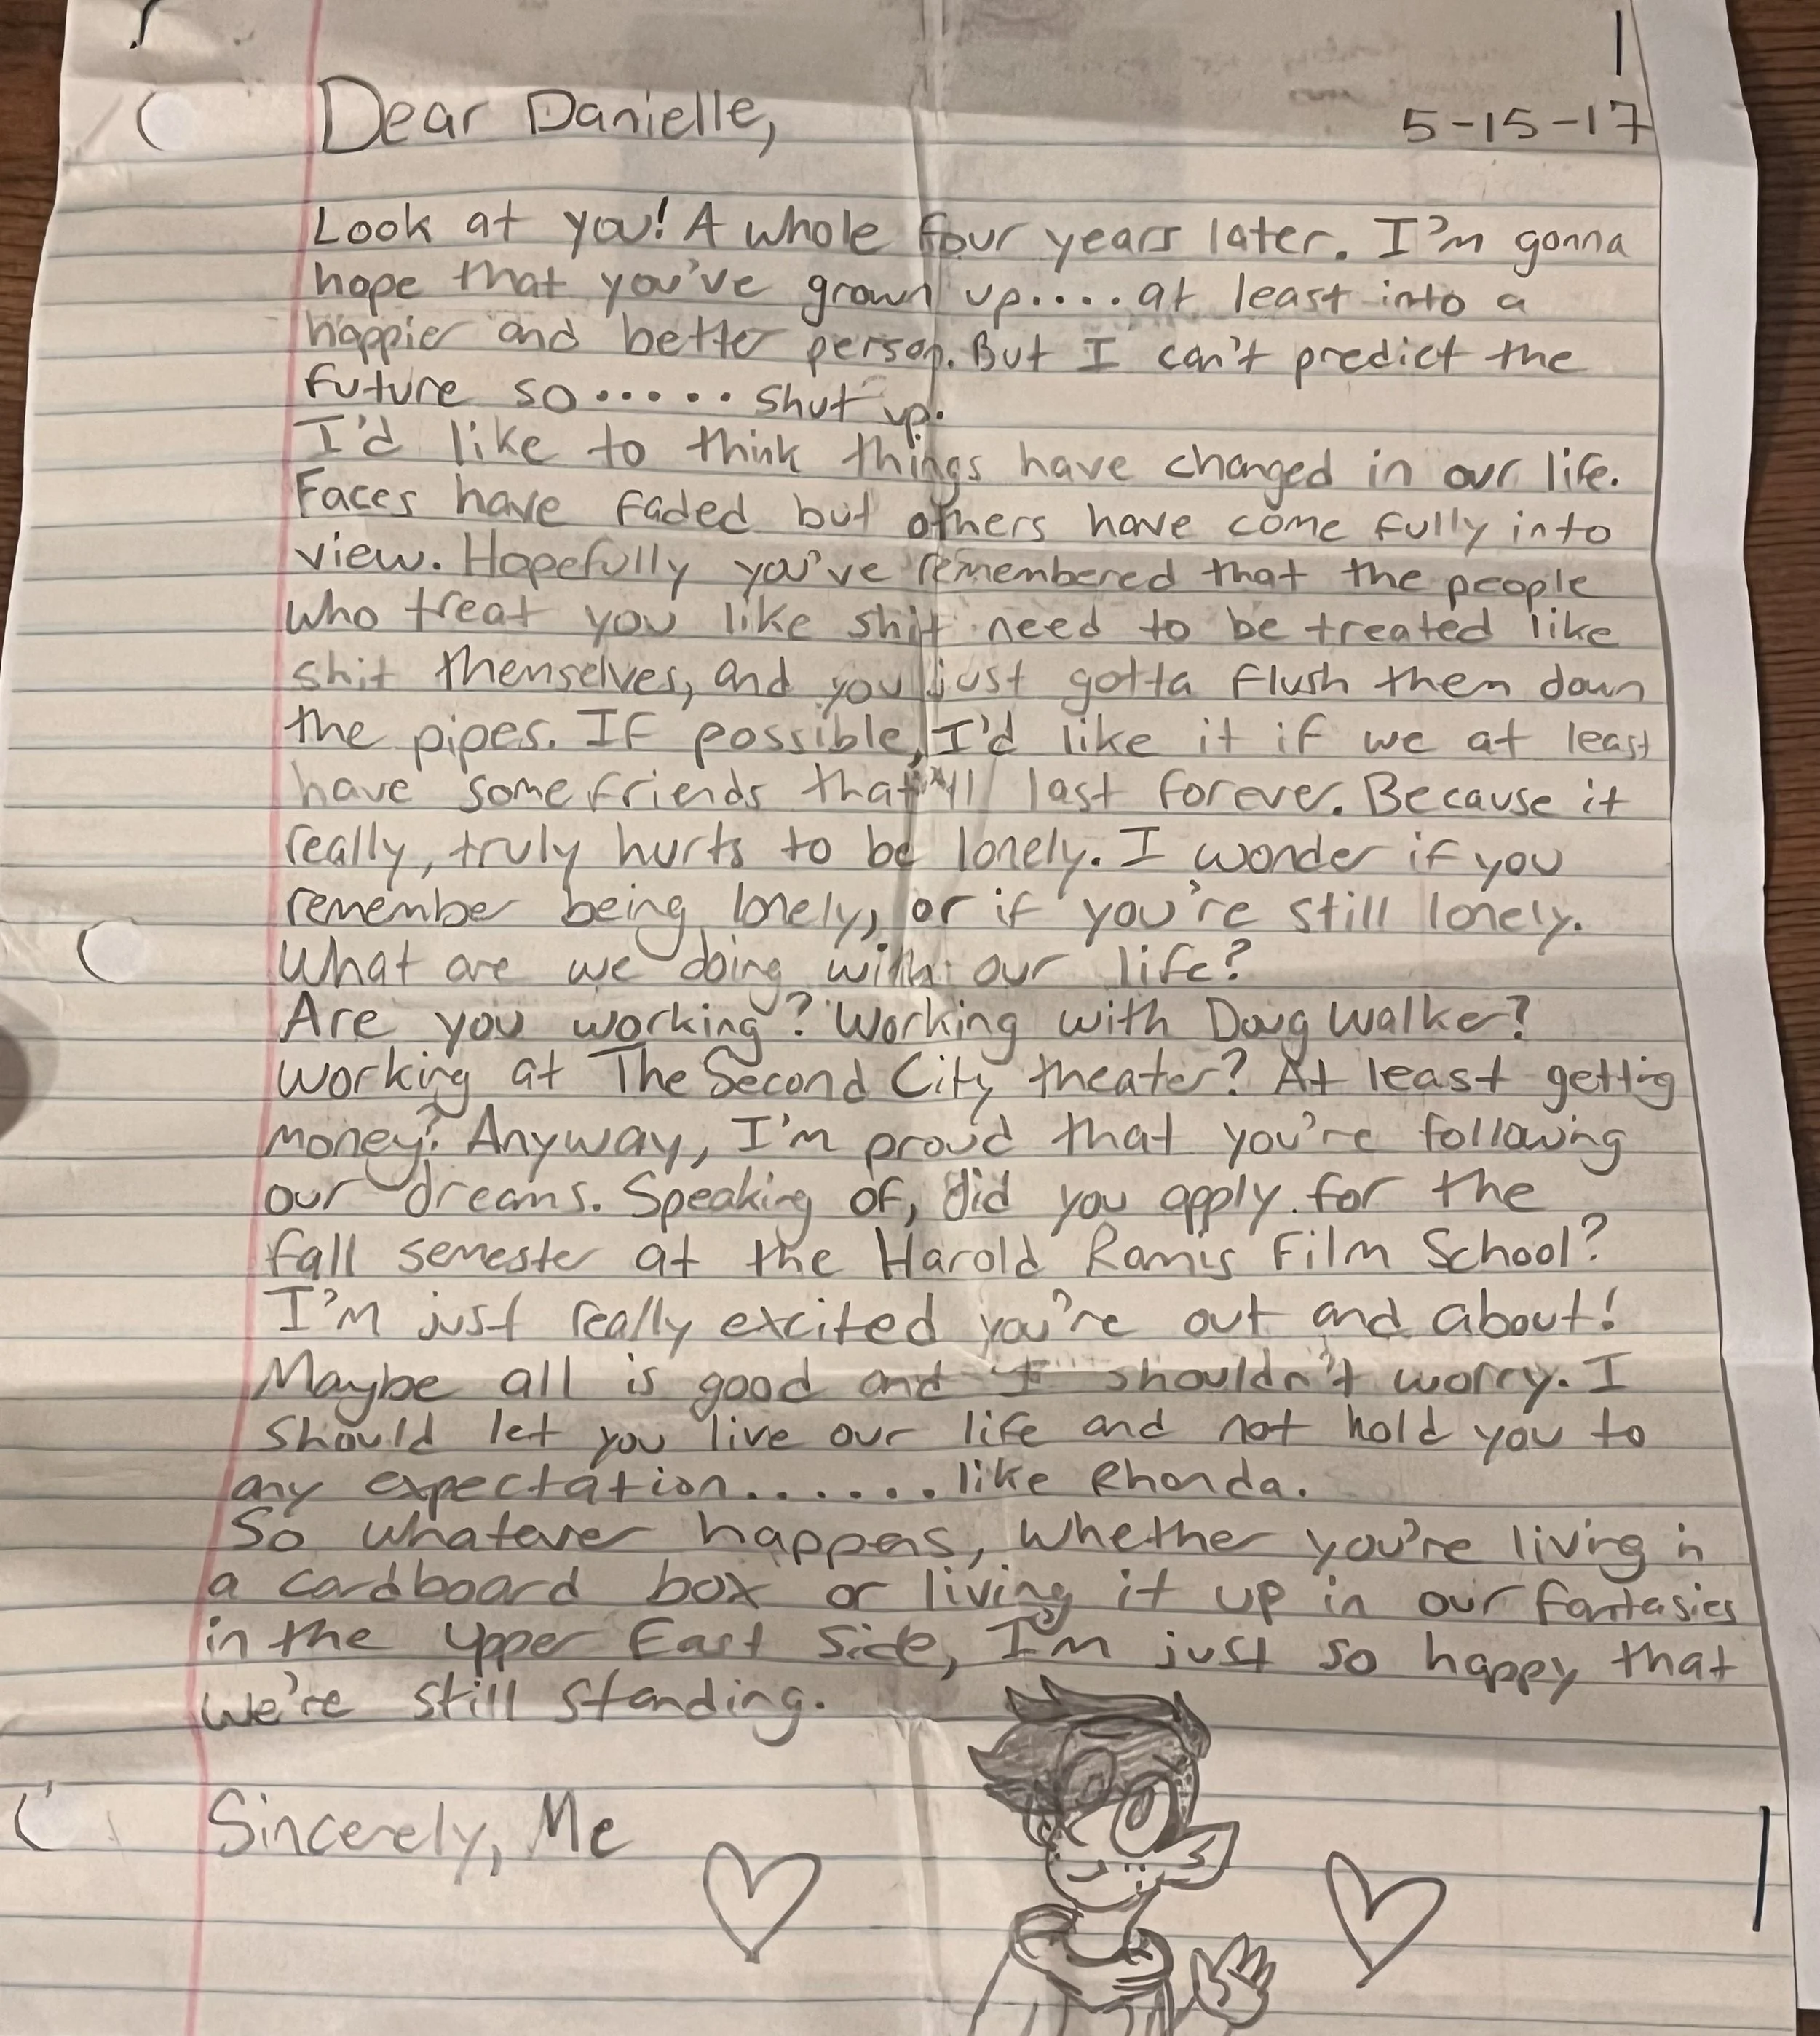 Dear Danielle,
5-15-17
Look at you! A whole four years later. I'm gonna
hope that you've grown up.... at least into a
happier and better person. But I can't predict the
future so ..... shut up.
I'd like to think things have changed in our life.
Faces have faded but others have come fully into
view. Hopefully you've remembered that the people
who treat you like shit need to be treated like
shit themselves, and you just gotta flush them down
the pipes. If possible, I'd like it if we at least
have some friends that'll last forever. Because it
really, truly hurts to be lonely. I wonder if you
remember being lonely, or if you're still lonely.
What are we doing with our life?
Are you working? Working with Doug Walker?
Working at The Second City theater? At least getting
money? Anyway, I'm proud that you're following
our dreams. Speaking of, did you apply for the
fall semester at the Harold Ramis Film School?
I'm just really excited you're out and about!
Maybe all is good and I shouldn't worry. I
should let you live our life and not hold you to
any expectation...... like Rhonda.
So whatever happens, whether you're living in
a cardboard box or living it up in our fantasies
in the Upper East Side, I'm just so happy that
we're still standing.
Sincerely, Me